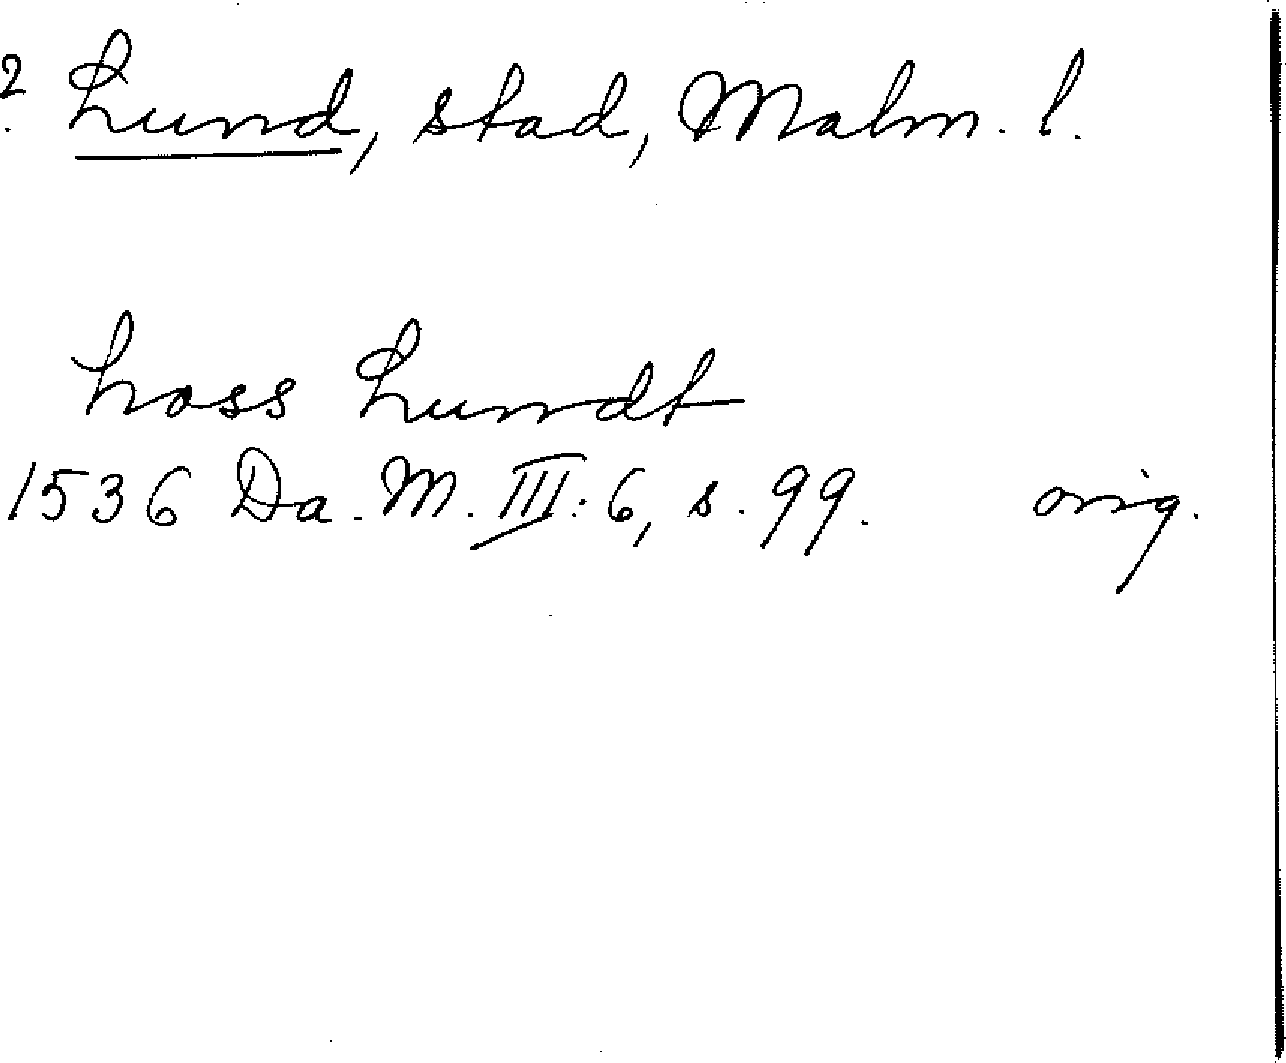 2. Lund, stad, Malm. l.
hoss Lundt
1536 Da. M. III: 6, s. 99. orig.